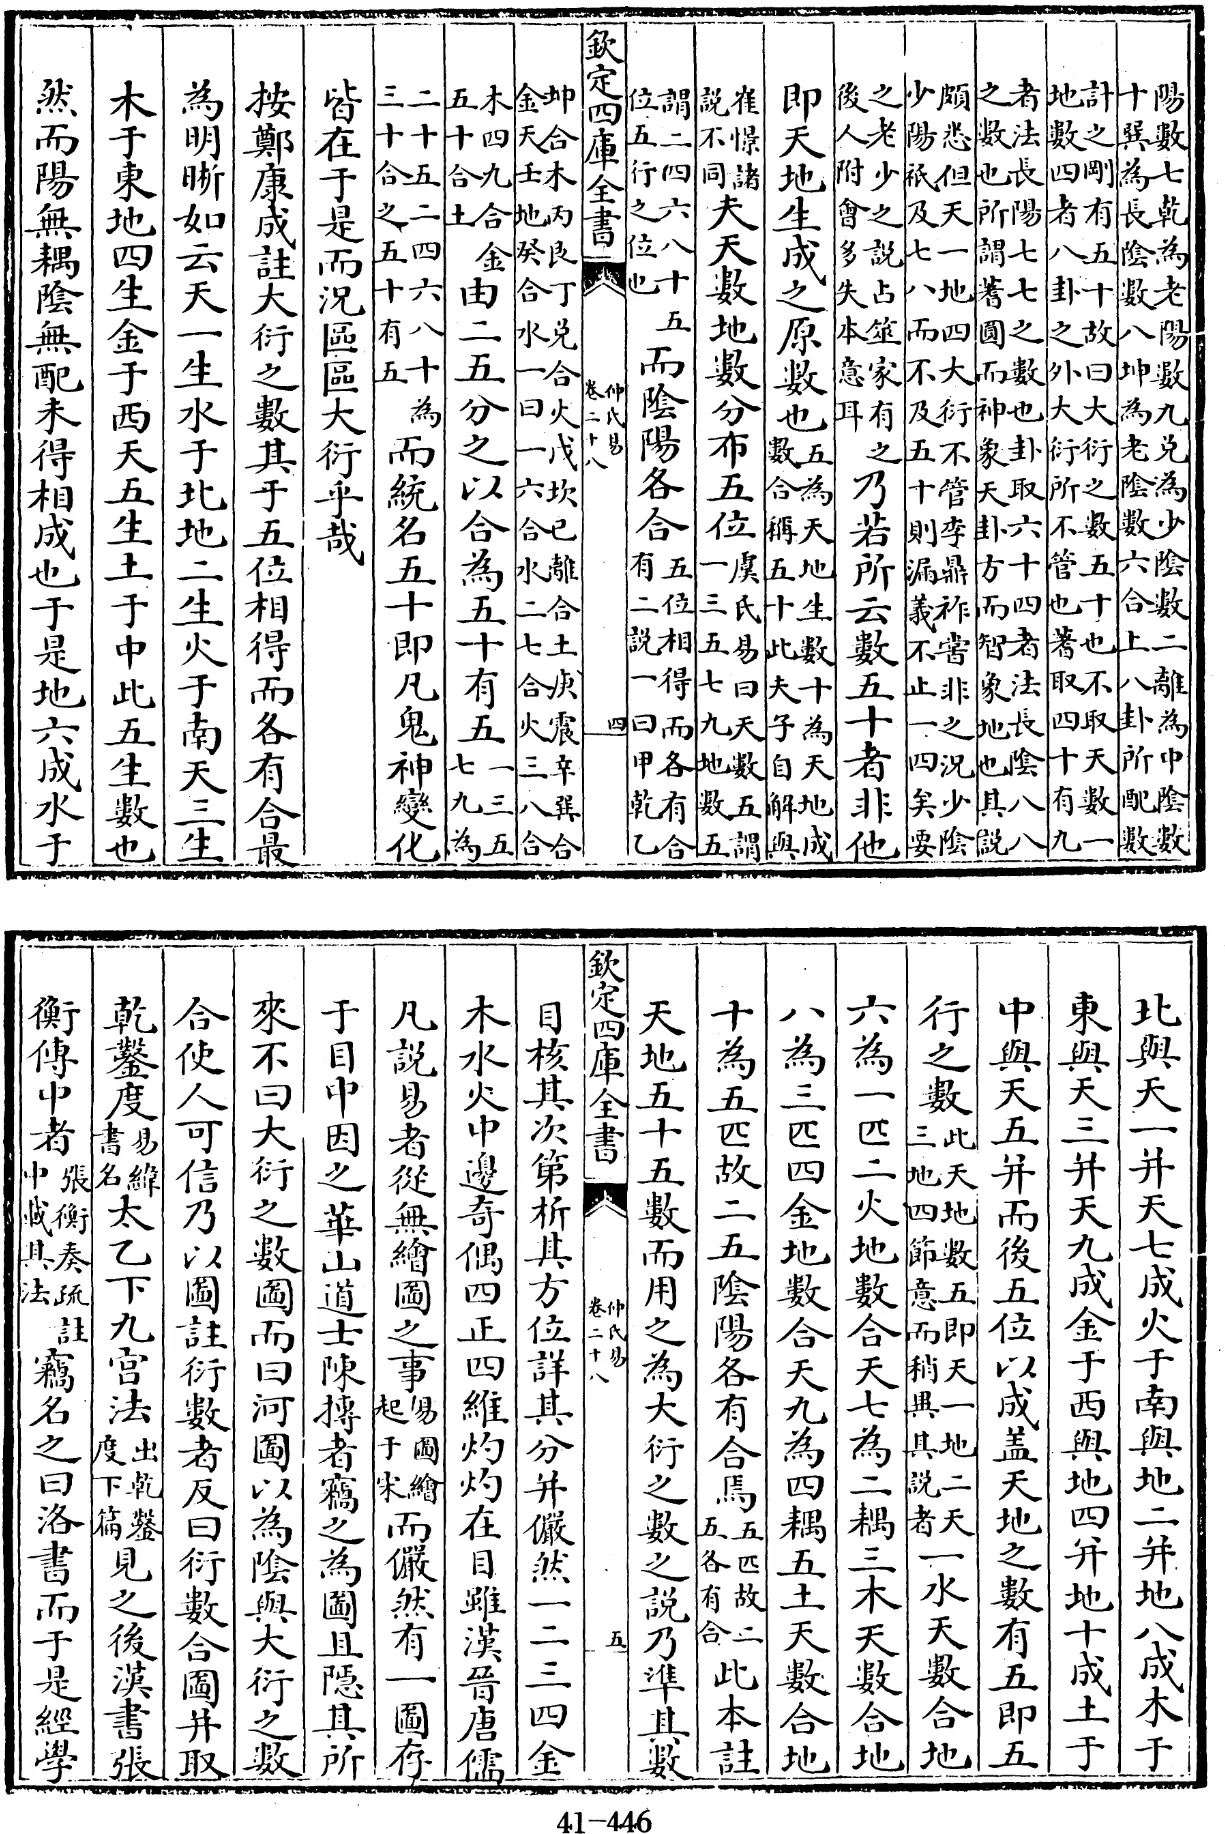 陽數七乾為老陽數九兌為少陰數二離為中陰數
十巽為長陰數八坤為老陰數六合上八卦所配數
計之剛有五十故曰大衍之數五十也不取天數一
地數四者八卦之外大衍所不管也蓍取四十有九
者法長陽七七之數也卦取六十四者法長陰八八
之數也所謂蓍圓而神象天卦方而智象地也其説
頗悉但天一地四大衍不管李鼎祚嘗非之況少陰
少陽祇及七八而不及五十則漏義不止一四矣要
之老少之説占筮家有之後人附會多失本意耳乃若所云數五十者非他
即天地生成之原數也五為天地生數十為天地成數合稱五十此夫子自解與
崔憬諸説不同夫天數地數分布五位虞氏易曰天數五謂一三五七九地數五
謂二四六八十五位五行之位也而陰陽各合五位相得而各有合有二説一曰甲乾乙
欽定四庫全書 仲氏易 卷二十八 四
坤合木丙艮丁兌合火戊坎己離合土庚震辛巽合
金天壬地癸合水一曰一六合水二七合火三八合
木四九合金五十合土由二五分之以合為五十有五一三五七九為
二十五二四六八十為三十合之五十有五而統名五十即凡鬼神變化
皆在于是而況區區大衍乎哉
按鄭康成註大衍之數其于五位相得而各有合最
為明晰如云天一生水于北地二生火于南天三生
木于東地四生金于西天五生土于中此五生數也
然而陽無耦陰無配未得相成也于是地六成水于
北與天一并天七成火于南與地二并地八成木于
東與天三并天九成金于西與地四并地十成土于
中與天五并而後五位以成盖天地之數有五即五
行之數此天地數五即天一地二天三地四節意而稍異其説者一水天數合地
六為一匹二火地數合天七為二耦三木天數合地
八為三匹四金地數合天九為四耦五土天數合地
十為五匹故二五陰陽各有合焉五匹故二五各有合此本註
天地五十五數而用之為大衍之數之説乃準其數
欽定四庫全書 仲氏易 卷二十八 五
目核其次第析其方位詳其分并儼然一二三四金
木水火中邊奇偶四正四維灼灼在目雖漢晉唐儒
凡説易者從無繪圖之事易圖繪起于宋而儼然有一圖存
于目中因之華山道士陳摶者竊之為圖且隱其所
來不曰大衍之數圖而曰河圖以為陰與大衍之數
合使人可信乃以圖註衍數者反曰衍數合圖并取
乾鑿度易緯書名太乙下九宫法出乾鑿度下篇見之後漢書張
衡傳中者張衡奏疏註中載其法竊名之曰洛書而于是經學
41-446